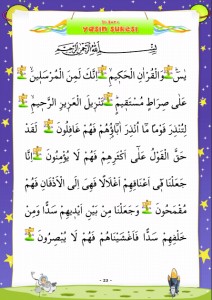 YASİN SURESİ
بِسْمِ اللّٰهِ الرَّحْمٰنِ الرَّحِيمِ
يٰسٓ وَالْقُرْاٰنِ الْحَكِيمِ اِنَّكَ لَمِنَ الْمُرْسَلِينَ
عَلٰى صِرَاطٍ مُسْتَقِيمٍ تَنْزِيلَ الْعَزِيزِ الرَّحِيمِ
لِتُنْذِرَ قَوْمًا مَٓا اُنْذِرَ اٰبَٓاؤُ۬هُمْ فَهُمْ غَافِلُونَ لَقَدْ
حَقَّ الْقَوْلُ عَلٰٓى اَكْثَرِهِمْ فَهُمْ لَا يُؤْمِنُونَ اِنَّا
جَعَلْنَا فِٓي اَعْنَاقِهِمْ اَغْلَالًا فَهِيَ اِلَى الْاَذْقَانِ فَهُمْ
مُقْمَحُونَ وَجَعَلْنَا مِنْ بَيْنِ اَيْدِيهِمْ سَدًّا وَمِنْ
خَلْفِهِمْ سَدًّا فَاَغْشَيْنَاهُمْ فَهُمْ لَا يُبْصِرُونَ
- 23 -